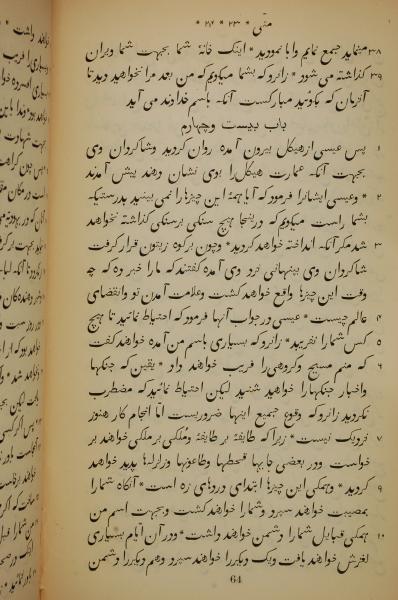 متّی * ۲۳ * ۲۴ *
۳۸ مینماید جمع نمایم وابا نمودید * اینک خانهٔ شما بجهت شما ویران
۳۹ کذاشته می شود * زانروکه بشما میکویم که من بعد مرا نخواهید دید تا
آنزمان که بکوئید مبارکست آنکه باسم خداوند می آید
باب بیست وچهارم
۱ پس عیسی از هیکل بیرون آمده روان کردید وشاکردان وی
بجهت آنکه عمارت هیکل را بوی نشان دهند پیش آمدند
۲ * وعیسی ایشانرا فرمود که آیا همهٔ این چیزها را نمی بینید بدرستیکه
بشما راست میکویم که دراینجا هیچ سنکی برسنکی کذاشته نخواهد
۳ شد مکر آنکه انداخته خواهد کردید * وچون برکوه زیتون قرار کرفت
شاکردان وی بپنهانی نزد وی آمده کفتند که مارا خبر ده که چه
وقت این چیزها واقع خواهد کشت وعلامت آمدن تو وانقضای
۴ عالم چیست * عیسی در جواب آنها فرمود که احتیاط نمائید تا هیچ
۵ کس شمارا نفریبد * زانروکه بسیاری باسم من آمده خواهند کفت
۶ که منم مسیح وکروهی را فریب خواهند داد * یقین که جنکها
واخبار جنکهارا خواهید شنید لیکن احتیاط نمائید که مضطرب
نکردید زانروکه وقوع جمیع اینها ضروریست امّا انجام کار هنوز
۷ نزدیک نیست * زیرا که طایفهٔ بر طایفهٔ ومُلکی بر ملکی خواهند بر
خواست ودر بعضی جایها قحطها وطاعونها وزلزلها پدید خواهد
۹ کردید * وهمکی این چیزها ابتدای دردهای زه است * آنکاه شمارا
بمصیبت خواهند سپرد وشمارا خواهند کشت وبجهت اسم من
۱۰ همکی قبایل شمارا دشمن خواهند داشت * ودر آن ایّام بسیاری
لغزش خواهند یافت ویک دیکررا خواهند سپرد وهم دیکررا دشمن
64